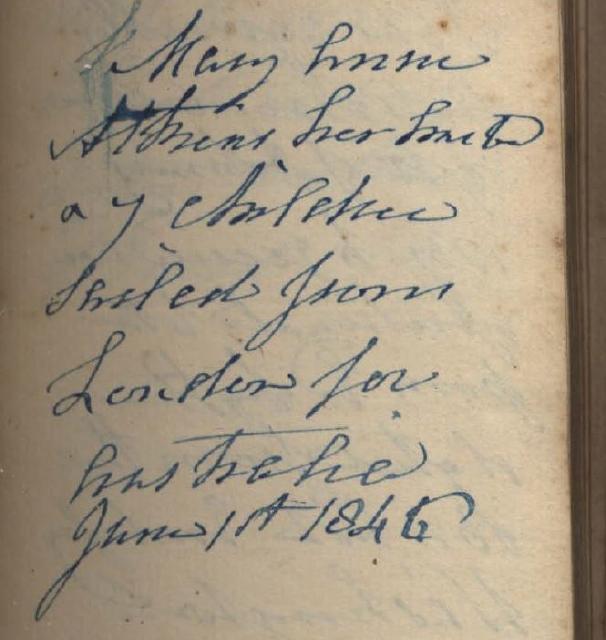 Mary Anne
Athens her husb
a 7 children
Sailed from
London for
Australia
June 1st 1846